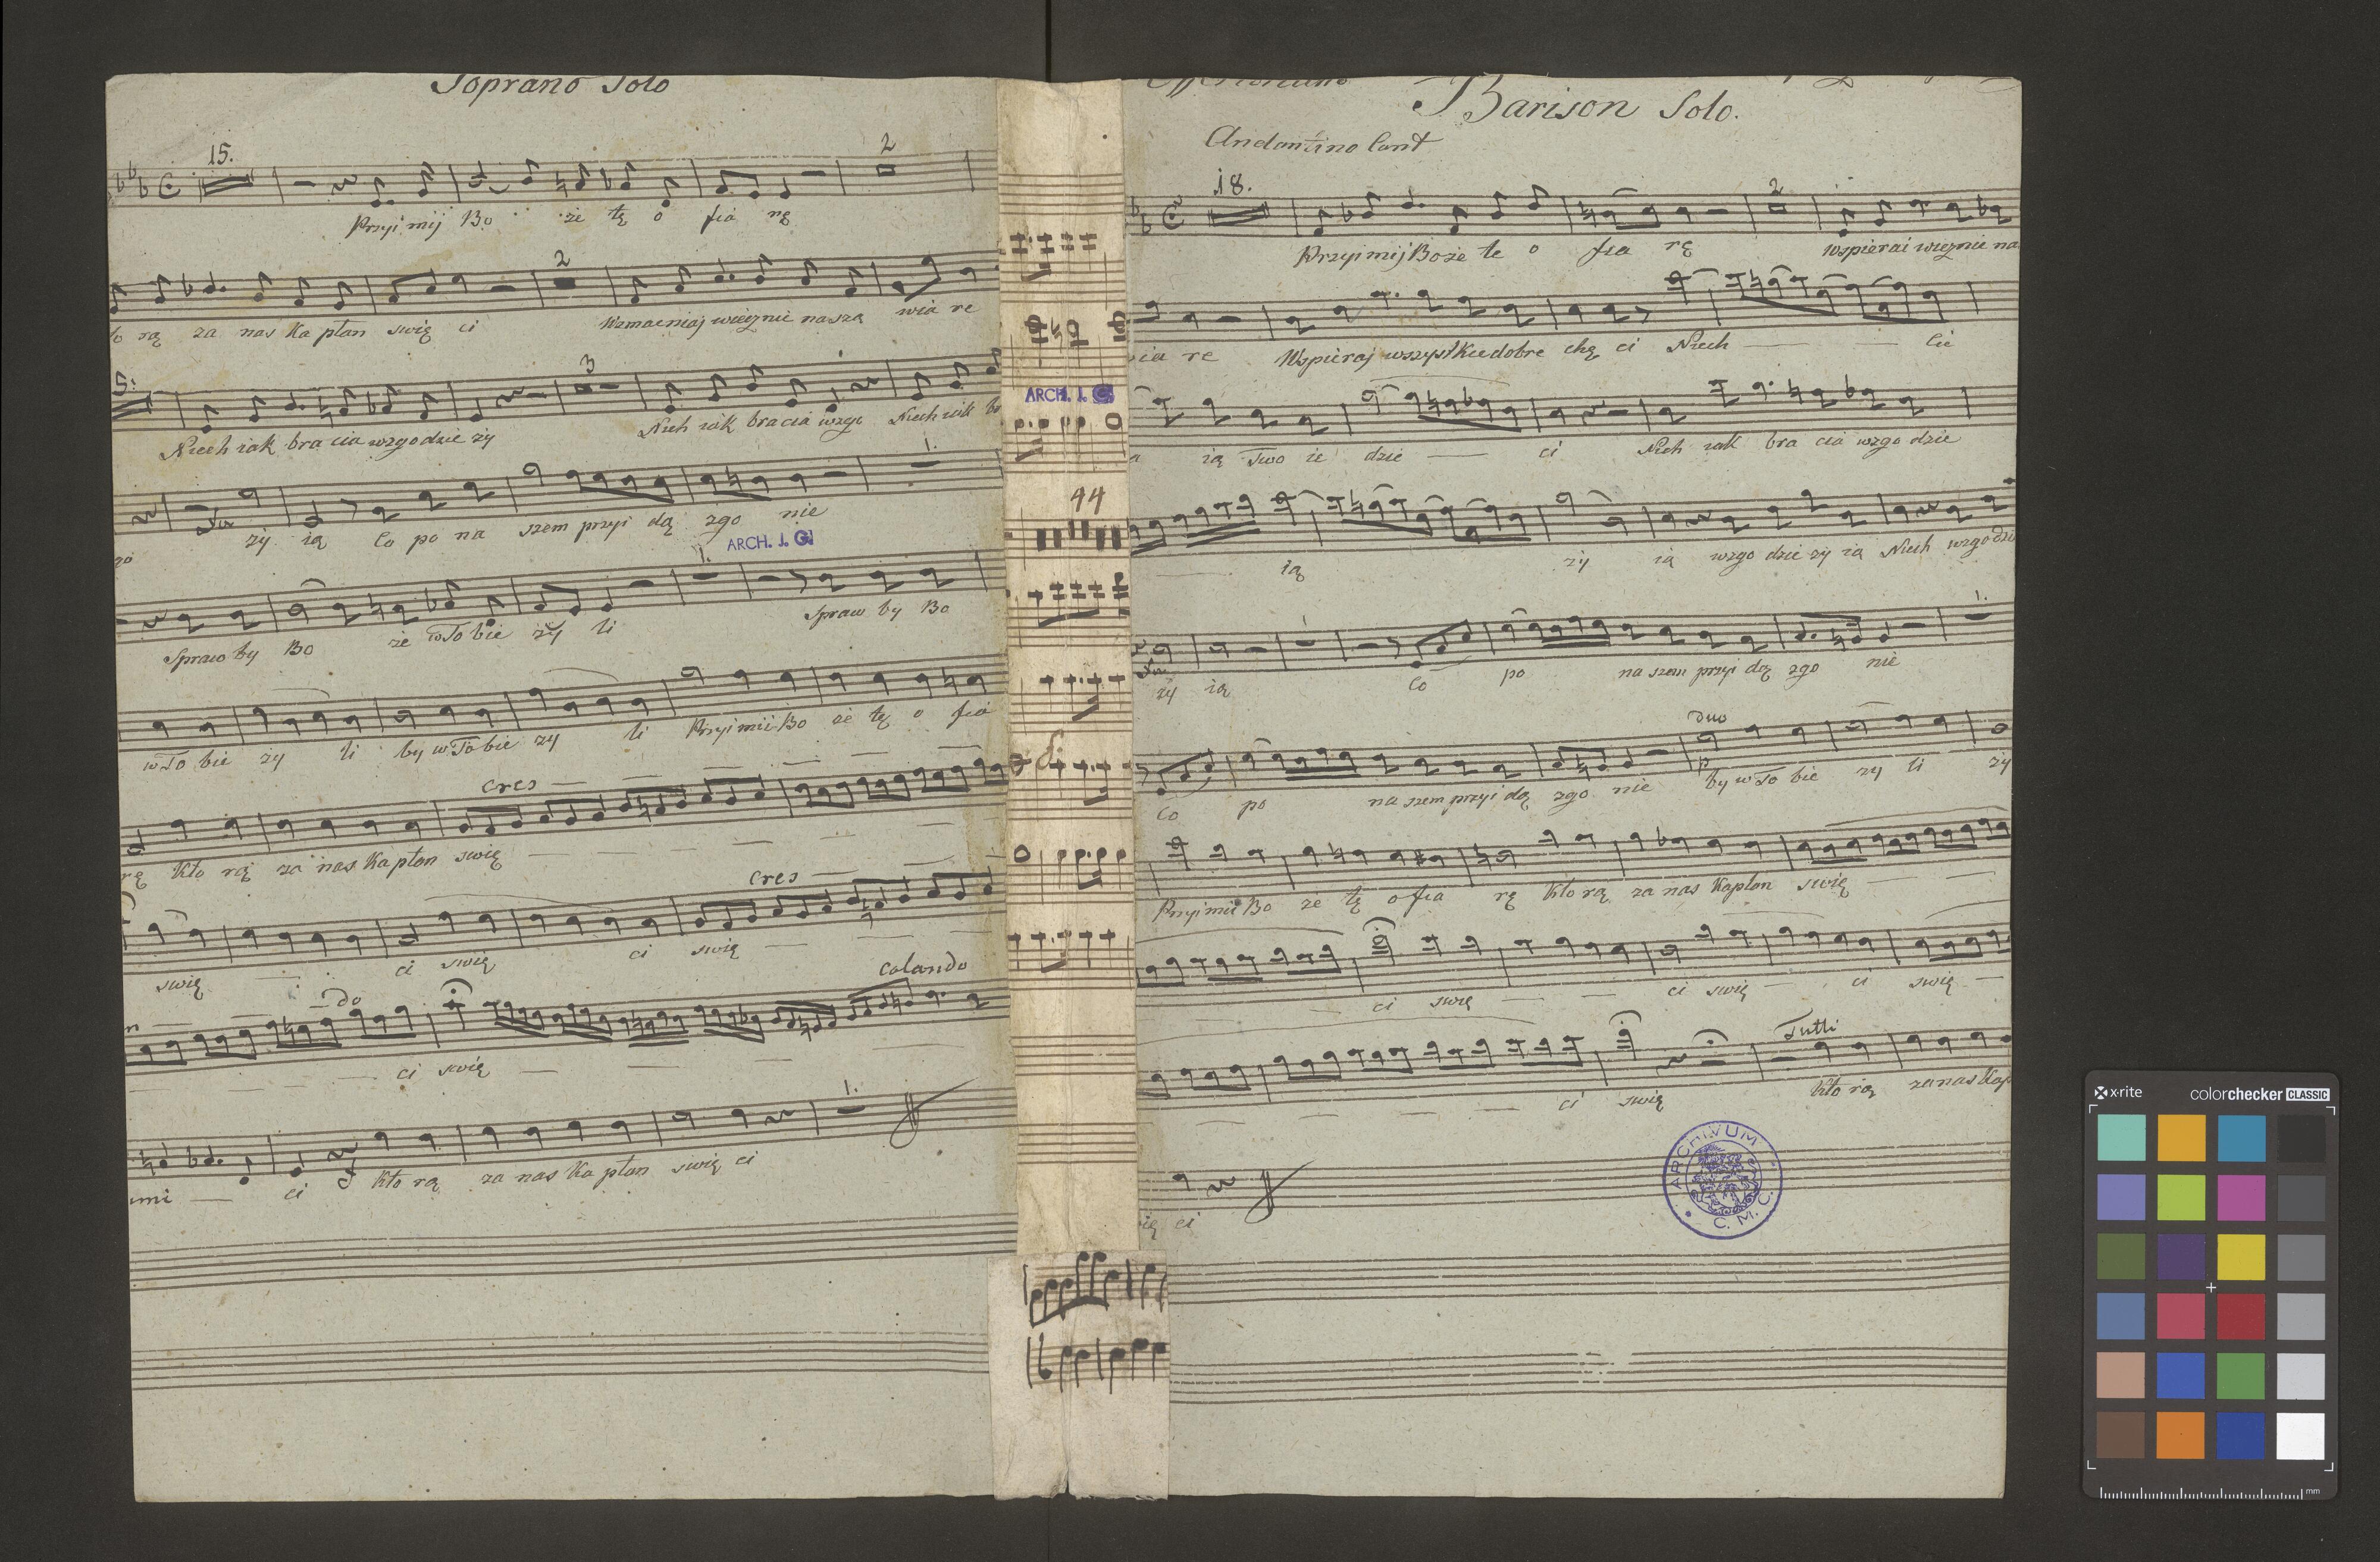 Soprano Solo
15.
2
Przyi mij Bo że tę o fia rę
2
rą za nas Ka płan swię ci Wzmacniaj wieznie naszą wia re
5.
3
Niech iak bra cia wzgodzie zÿ Niech iak bra cia wzgo Niech iak
1.
zÿ ią Co po na szem przyi dą zgo nie
ARCH. I. C
1.
Spraw by Bo że w To bie zÿ li Spraw by Bo
w To bie zy li by w To bie zy li Przyi mii Bo że tę o fia
cres
rę Kto rą za nas Ka płan swię
cres
swię ci swię ci swię
do
Colando
ci swię
1.
ci f Kto rą za nas Ka płan swię ci
ARCH. I. C
44
Barison Solo.
Andantino Cant
18.
2
Przyi mij Boże te o fia rę Wspierai wieznie na
wia re Wspieraj wszystkie dobre chę ci Niech cie
ią Two ie dzie ci Niech iak bra cia wzgo dzie
ią zÿ ią wzgo dzie zy ią Niech wzgo dzi
1.
1.
zÿ ią Co po na szem przyi dą zgo nie
duo
Co po na szem przyi dą zgo nie p by w To bie zy li zy
Przyi mii Bo że tę o fia rę Kto rą za nas Kapłan swię
ci swię ci swię ci swię
Tutti
ci swię Kto rą za nas Kap
swię ci
ARCHIVUM C. M. C.
x-rite colorchecker CLASSIC
mm